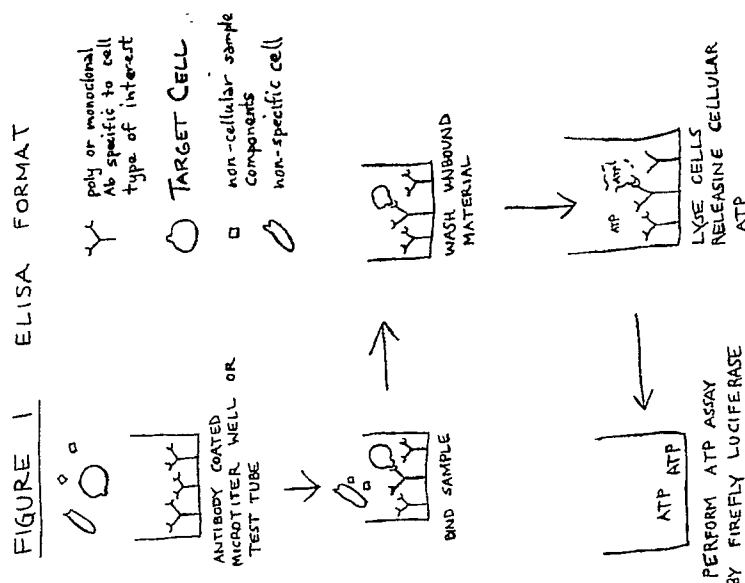 FIGURE 1 ELISA FORMAT
poly or monoclonal
Ab specific to cell
type of interest
TARGET CELL
non-cellular sample
components
non-specific cell
ANTIBODY COATED
MICROTITER WELL OR
TEST TUBE
BIND SAMPLE
WASH UNBOUND
MATERIAL
ATP
ATP
LYSE CELLS
RELEASING CELLULAR
ATP
ATP ATP
PERFORM ATP ASSAY
BY FIREFLY LUCIFERASE